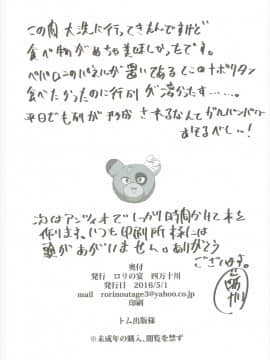 この前大洗に行ってきたんですけど
食べ物がめちゃ美味しかったです。
ペパロニのパネルが置いてある　ナポリタン
食べたかったのに行列が
平日でも列が
次はアンツィオでしっかり時間かけて本を
作ります。いつも印刷所様には
頭があがいません。ありがとう
ございます。
奥付
発行　ロリの宴　四万十川
発行日　2016/5/1
mail　rorinoutage3@yahoo.co.jp
印刷
トム出版様
※未成年の購入、閲覧を禁ず